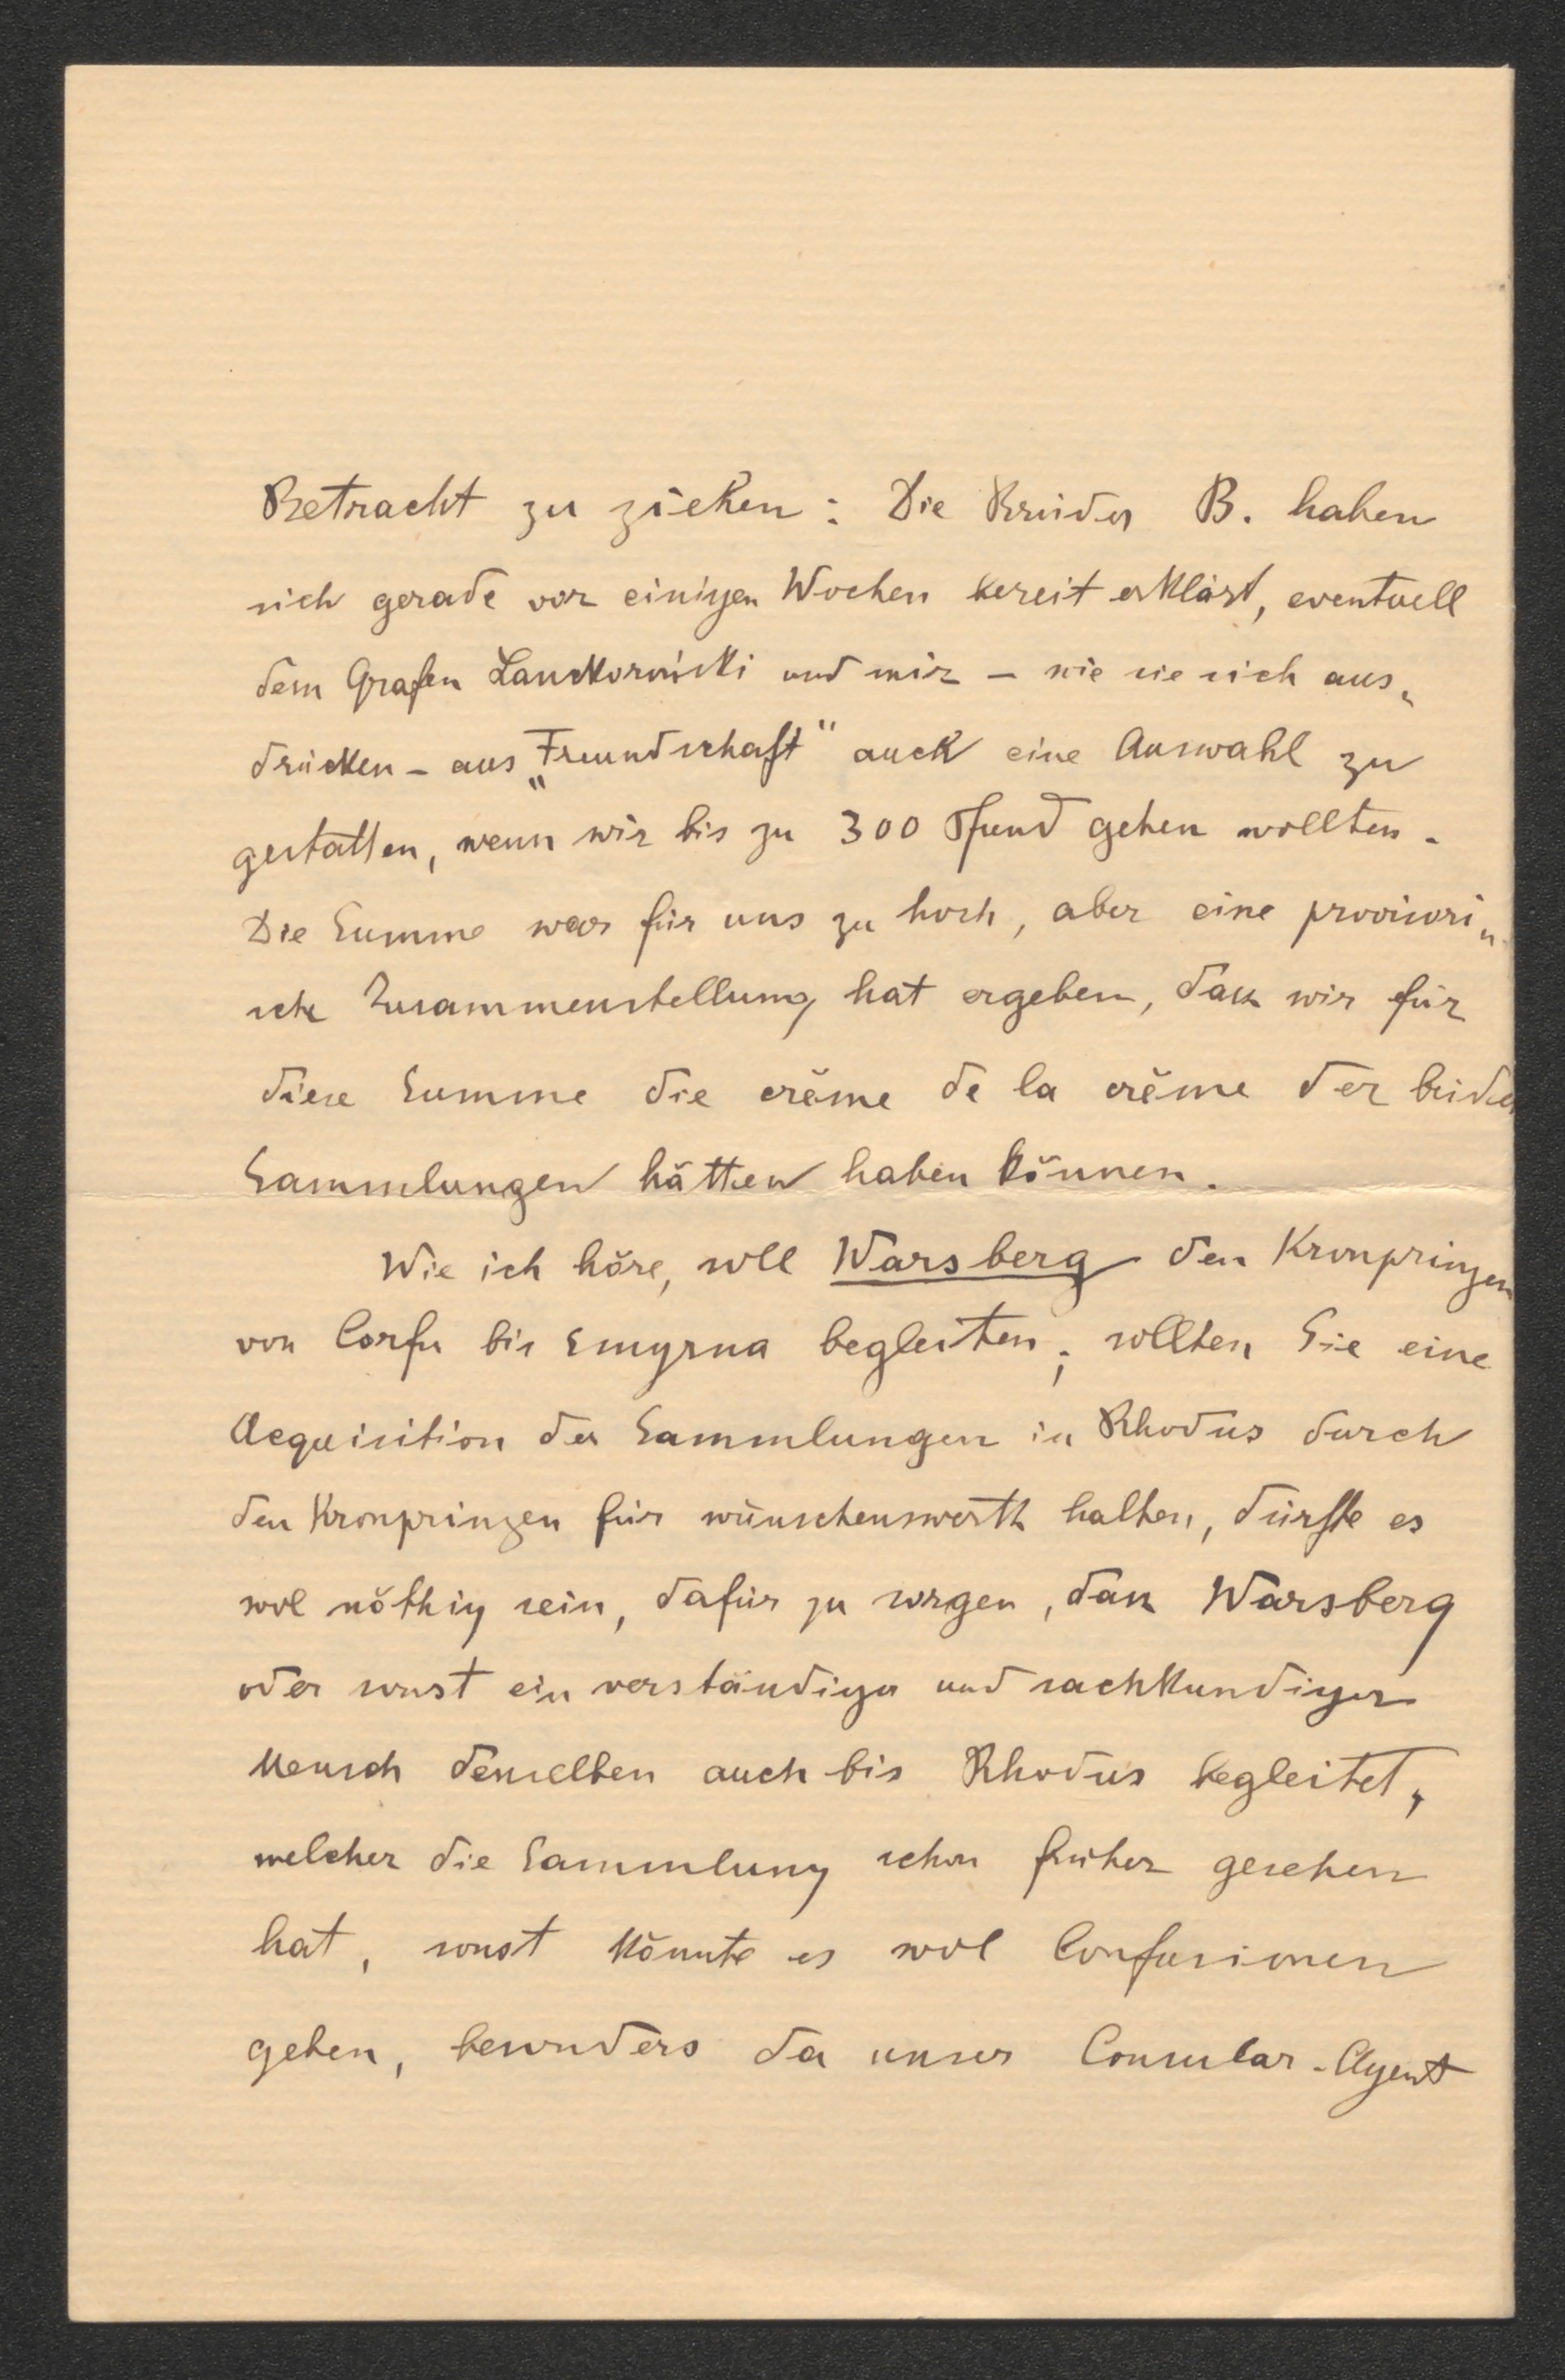 Betracht zu ziehen: Die Brüder B. haben
sich gerade vor einigen Wochen bereit erklärt, eventuell
dem Grafen Lanckoroński und mir – wie sie sich aus„
drücken – aus „Freundschaft" auch eine Auswahl zu
gestatten, wenn wir bis zu 300 Pfund gehen wollten.
Die Summe war für uns zu hoch, aber eine provisori„
sche Zusammenstellung hat ergeben, dass wir für
diese Summe die crême de la crême der beiden
Sammlungen hätten haben können.
Wie ich höre, soll Warsberg den Kronprinzen
von Corfu bis Smyrna begleiten; sollten Sie eine
Acquisition der Sammlungen in Rhodus durch
den Kronprinzen für wünschenswerth halten, dürfte es
wol nöthig sein, dafür zu sorgen, dass Warsberg
oder sonst ein verständiger und sachkundiger
Mensch denselben auch bis Rhodus begleitet,
welcher die Sammlung schon früher gesehen
hat, sonst könnte es wol Confusionen
geben, besonders da unser Consular-Agent